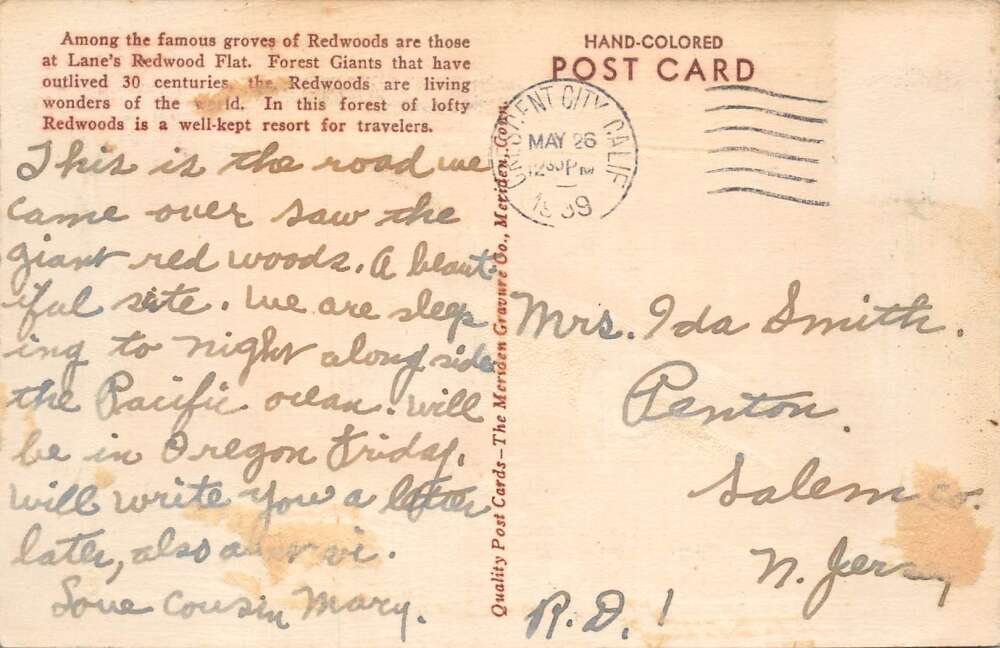 Among the famous groves of Redwoods are those
at Lane's Redwood Flat. Forest Giants that have
outlived 30 centuries, the Redwoods are living
wonders of the world. In this forest of lofty
Redwoods is a well-kept resort for travelers.
This is the road we
came over saw the
giant red woods. A beaut-
iful site. We are sleep
ing to night along side
the Pacific ocean. will
be in Oregon Friday.
will write you a letter
later, also
Love Cousin Mary.
Quality Post Cards—The Meriden Gravure Co., Meriden, Conn.
HAND-COLORED
POST CARD
CRESCENT CITY, CALIF
MAY 26
12 30 PM
1939
Mrs. Ida Smith.
Penton.
Salem co.
N. Jersey
R.D. 1